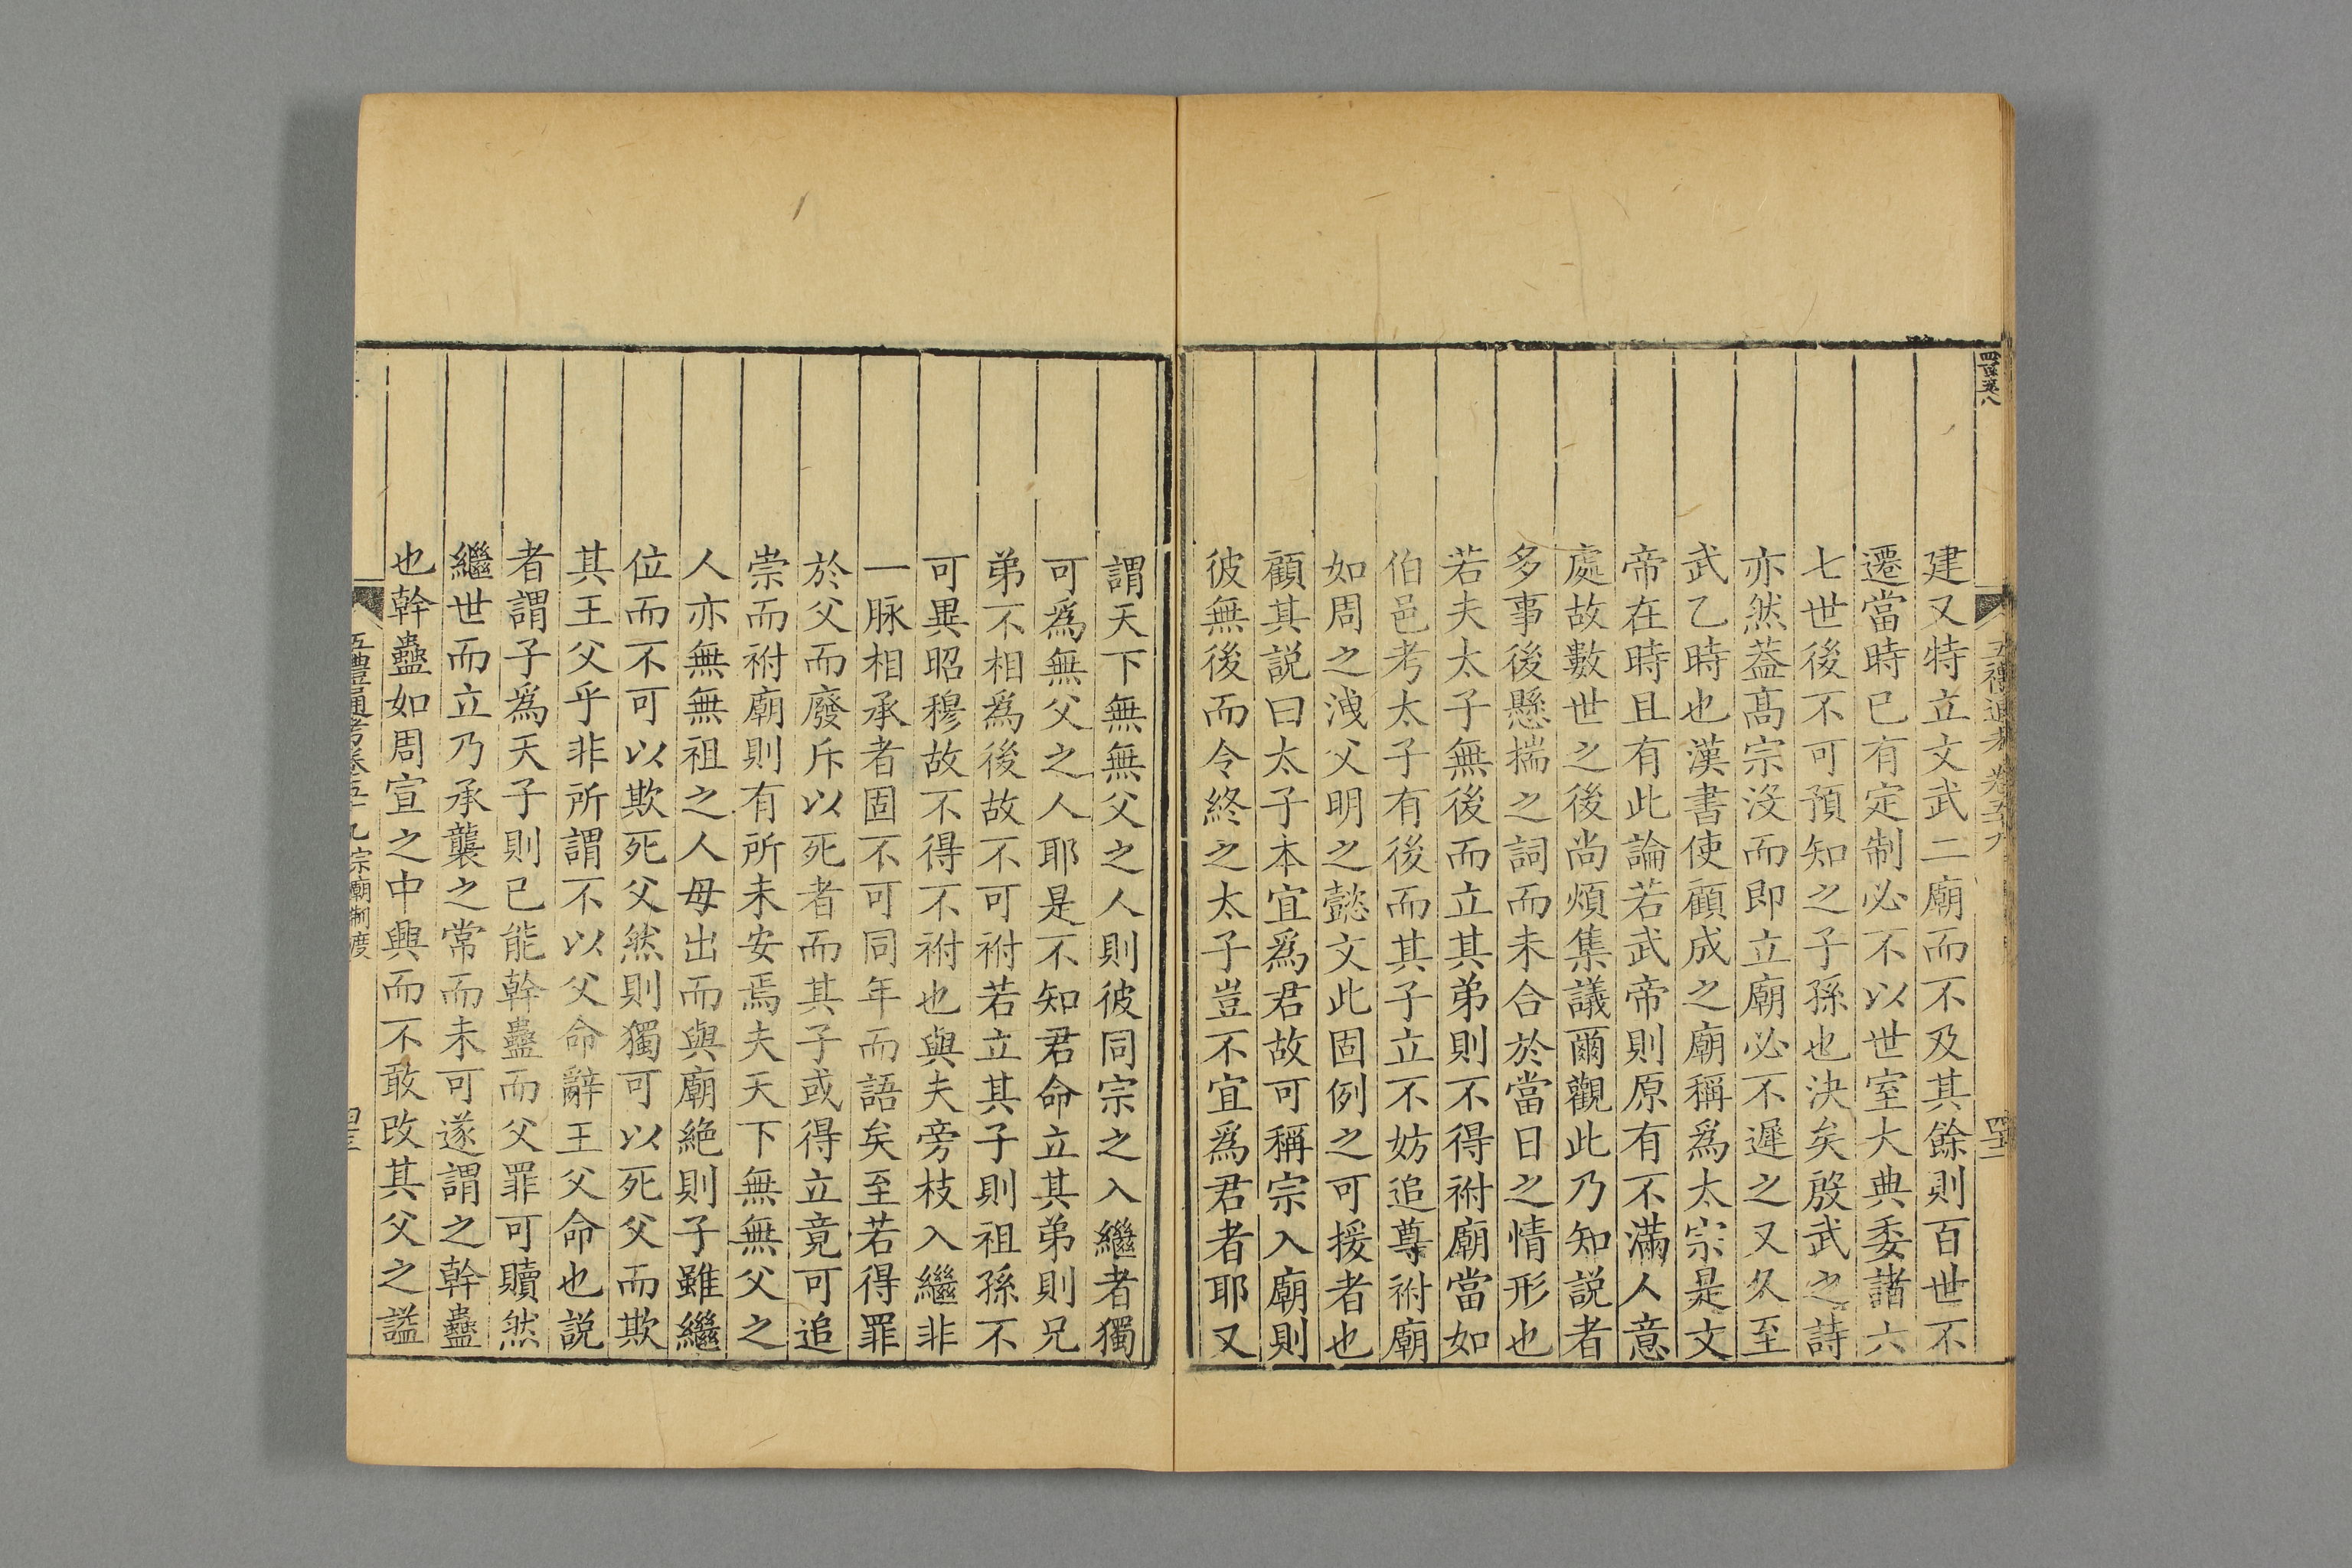 五禮通考卷五九
建又特立文武二廟而不及其餘則百世不
遷當時已有定制必不以世室大典委諸六
七世後不可預知之子孫也決矣殷武之詩
亦然葢髙宗沒而即立廟必不遲之又久至
武乙時也漢書使顧成之廟稱爲太宗是文
帝在時且有此論若武帝則原有不滿人意
處故數世之後尚煩集議爾觀此乃知説者
多事後懸揣之詞而未合於當日之情形也
若夫太子無後而立其弟則不得祔廟當如
伯邑考太子有後而其子立不妨追尊祔廟
如周之洩父明之懿文此固例之可援者也
顧其説曰太子本宜爲君故可稱宗入廟則
彼無後而令終之太子豈不宜爲君者耶又
謂天下無無父之人則彼同宗之入繼者獨
可爲無父之人耶是不知君命立其弟則兄
弟不相爲後故不可祔若立其子則祖孫不
可異昭穆故不得不祔也與夫旁枝入繼非
一脉相承者固不可同年而語矣至若得罪
於父而廢斥以死者而其子或得立竟可追
崇而祔廟則有所未安焉夫天下無無父之
人亦無無祖之人毋出而與廟絶則子雖繼
位而不可以欺死父然則獨可以死父而欺
其王父乎非所謂不以父命辭王父命也説
者謂子爲天子則已能幹蠱而父罪可贖然
繼世而立乃承襲之常而未可遂謂之幹蠱
也幹蠱如周宣之中興而不敢改其父之謚
五禮通考卷五十九 宗廟制度